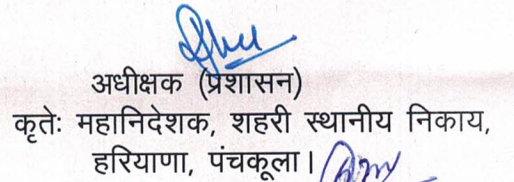 अधीक्षक (प्रशासन)
कृतेः महानिदेशक, शहरी स्थानीय निकाय,
हरियाणा, पंचकूला।